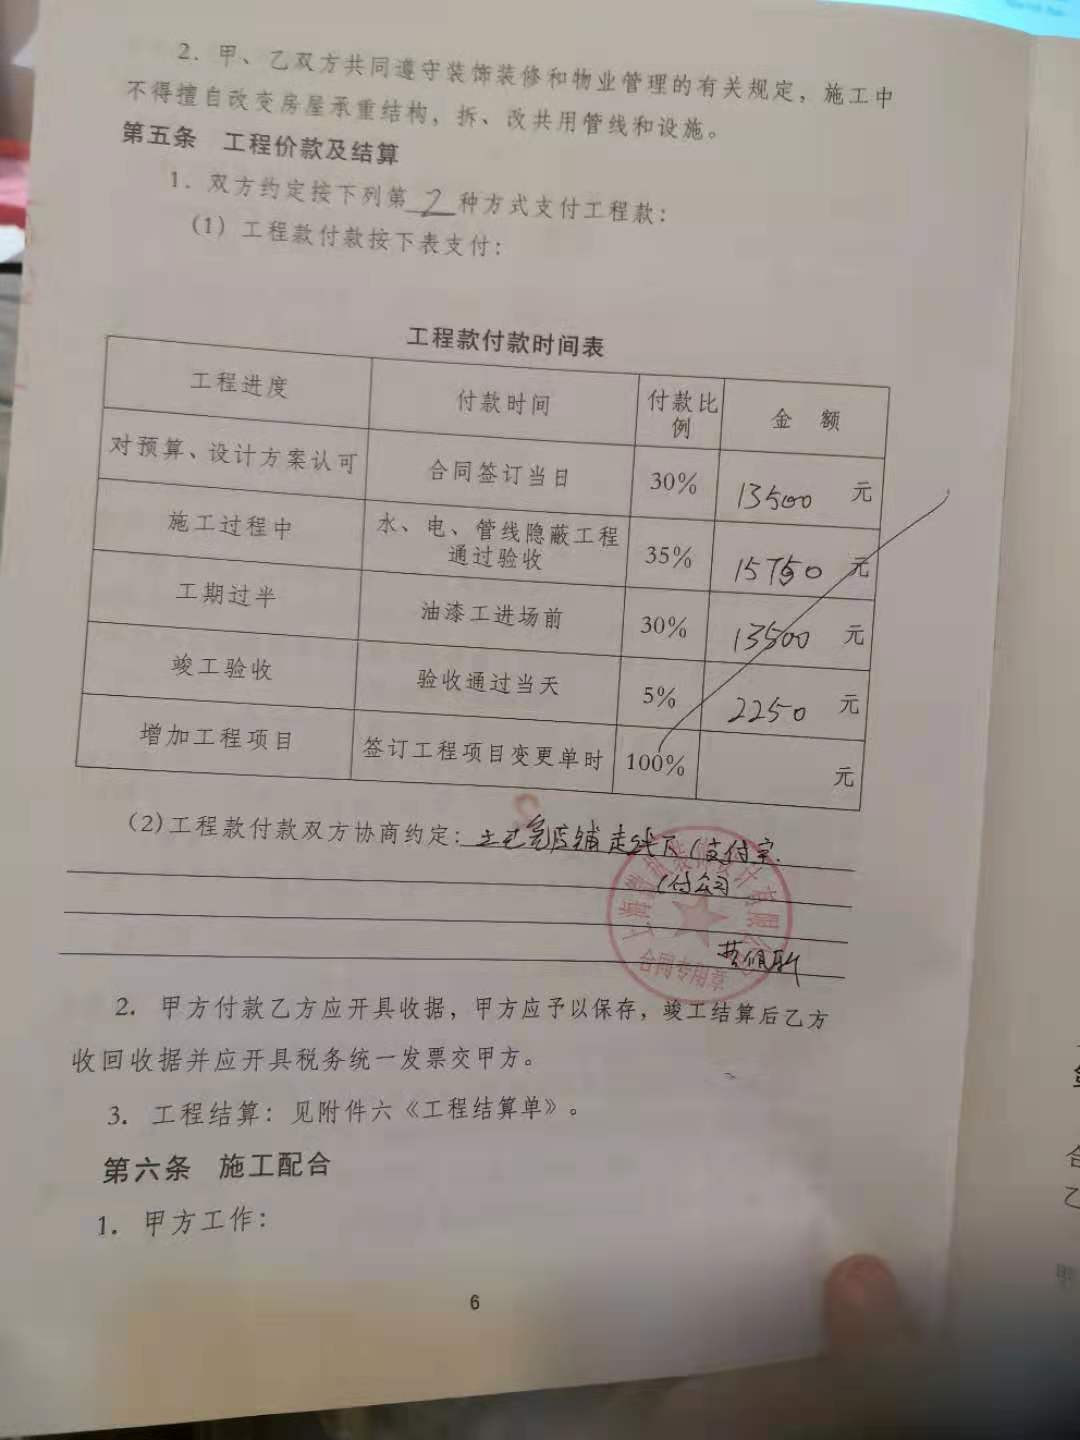 2. 甲、乙双方共同遵守装饰装修和物业管理的有关规定，施工中
不得擅自改变房屋承重结构，拆、改共用管线和设施。
第五条 工程价款及结算
1. 双方约定按下列第 2 种方式支付工程款：
(1) 工程款付款按下表支付：
工程款付款时间表
工程进度 付款时间 付款比例 金 额
对预算、设计方案认可 合同签订当日 30% 13500 元
施工过程中 水、电、管线隐蔽工程通过验收 35% 15750 元
工期过半 油漆工进场前 30% 13500 元
竣工验收 验收通过当天 5% 2250 元
增加工程项目 签订工程项目变更单时 100% 元
(2)工程款付款双方协商约定： 店铺走线下(支付宝
(付公司
合同专用章
2. 甲方付款乙方应开具收据，甲方应予以保存，竣工结算后乙方
收回收据并应开具税务统一发票交甲方。
3. 工程结算：见附件六《工程结算单》。
第六条 施工配合
1. 甲方工作：
6